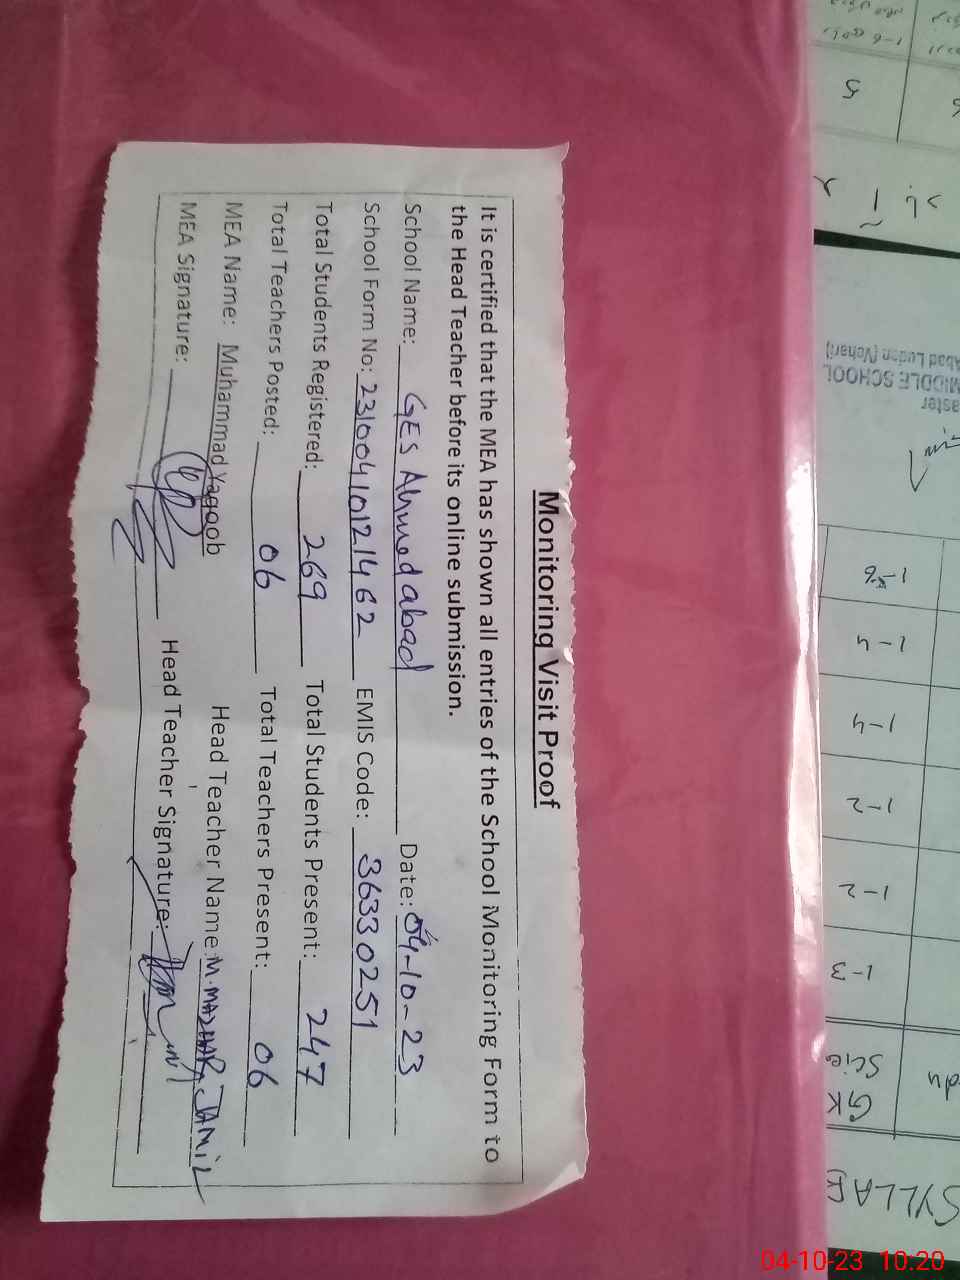 Monitoring Visit Proof
It is certified that the MEA has shown all entries of the School Monitoring Form to
the Head Teacher before its online submission.
School Name: GES Ahmedabad Date: 04-10-23
School Form No: 231004101214 62 EMIS Code: 36330251
Total Students Registered: 269 Total Students Present: 247
Total Teachers Posted: 06 Total Teachers Present: 06
MEA Name: Muhammad Yaqoob Head Teacher Name: M. MAZHAR JAMIL
MEA Signature: Head Teacher Signature:
MIDDLE SCHOOL
Abad Luddan (Vehari)
1-6
1-4
1-4
1-2
1-2
1-3
Scie
GK
5
04-10-23 10:20